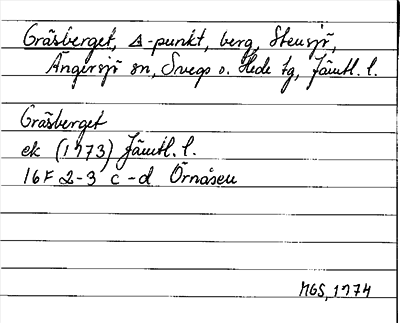 Gräsberget, △-punkt, berg, Stensjö,
Ängersjö sn, Svegs o. Hede tg, Jämtl. l.
Gräsberget
ek (1973) Jämtl. l.
16F 2-3 c-d Örnåsen
MGS, 1974